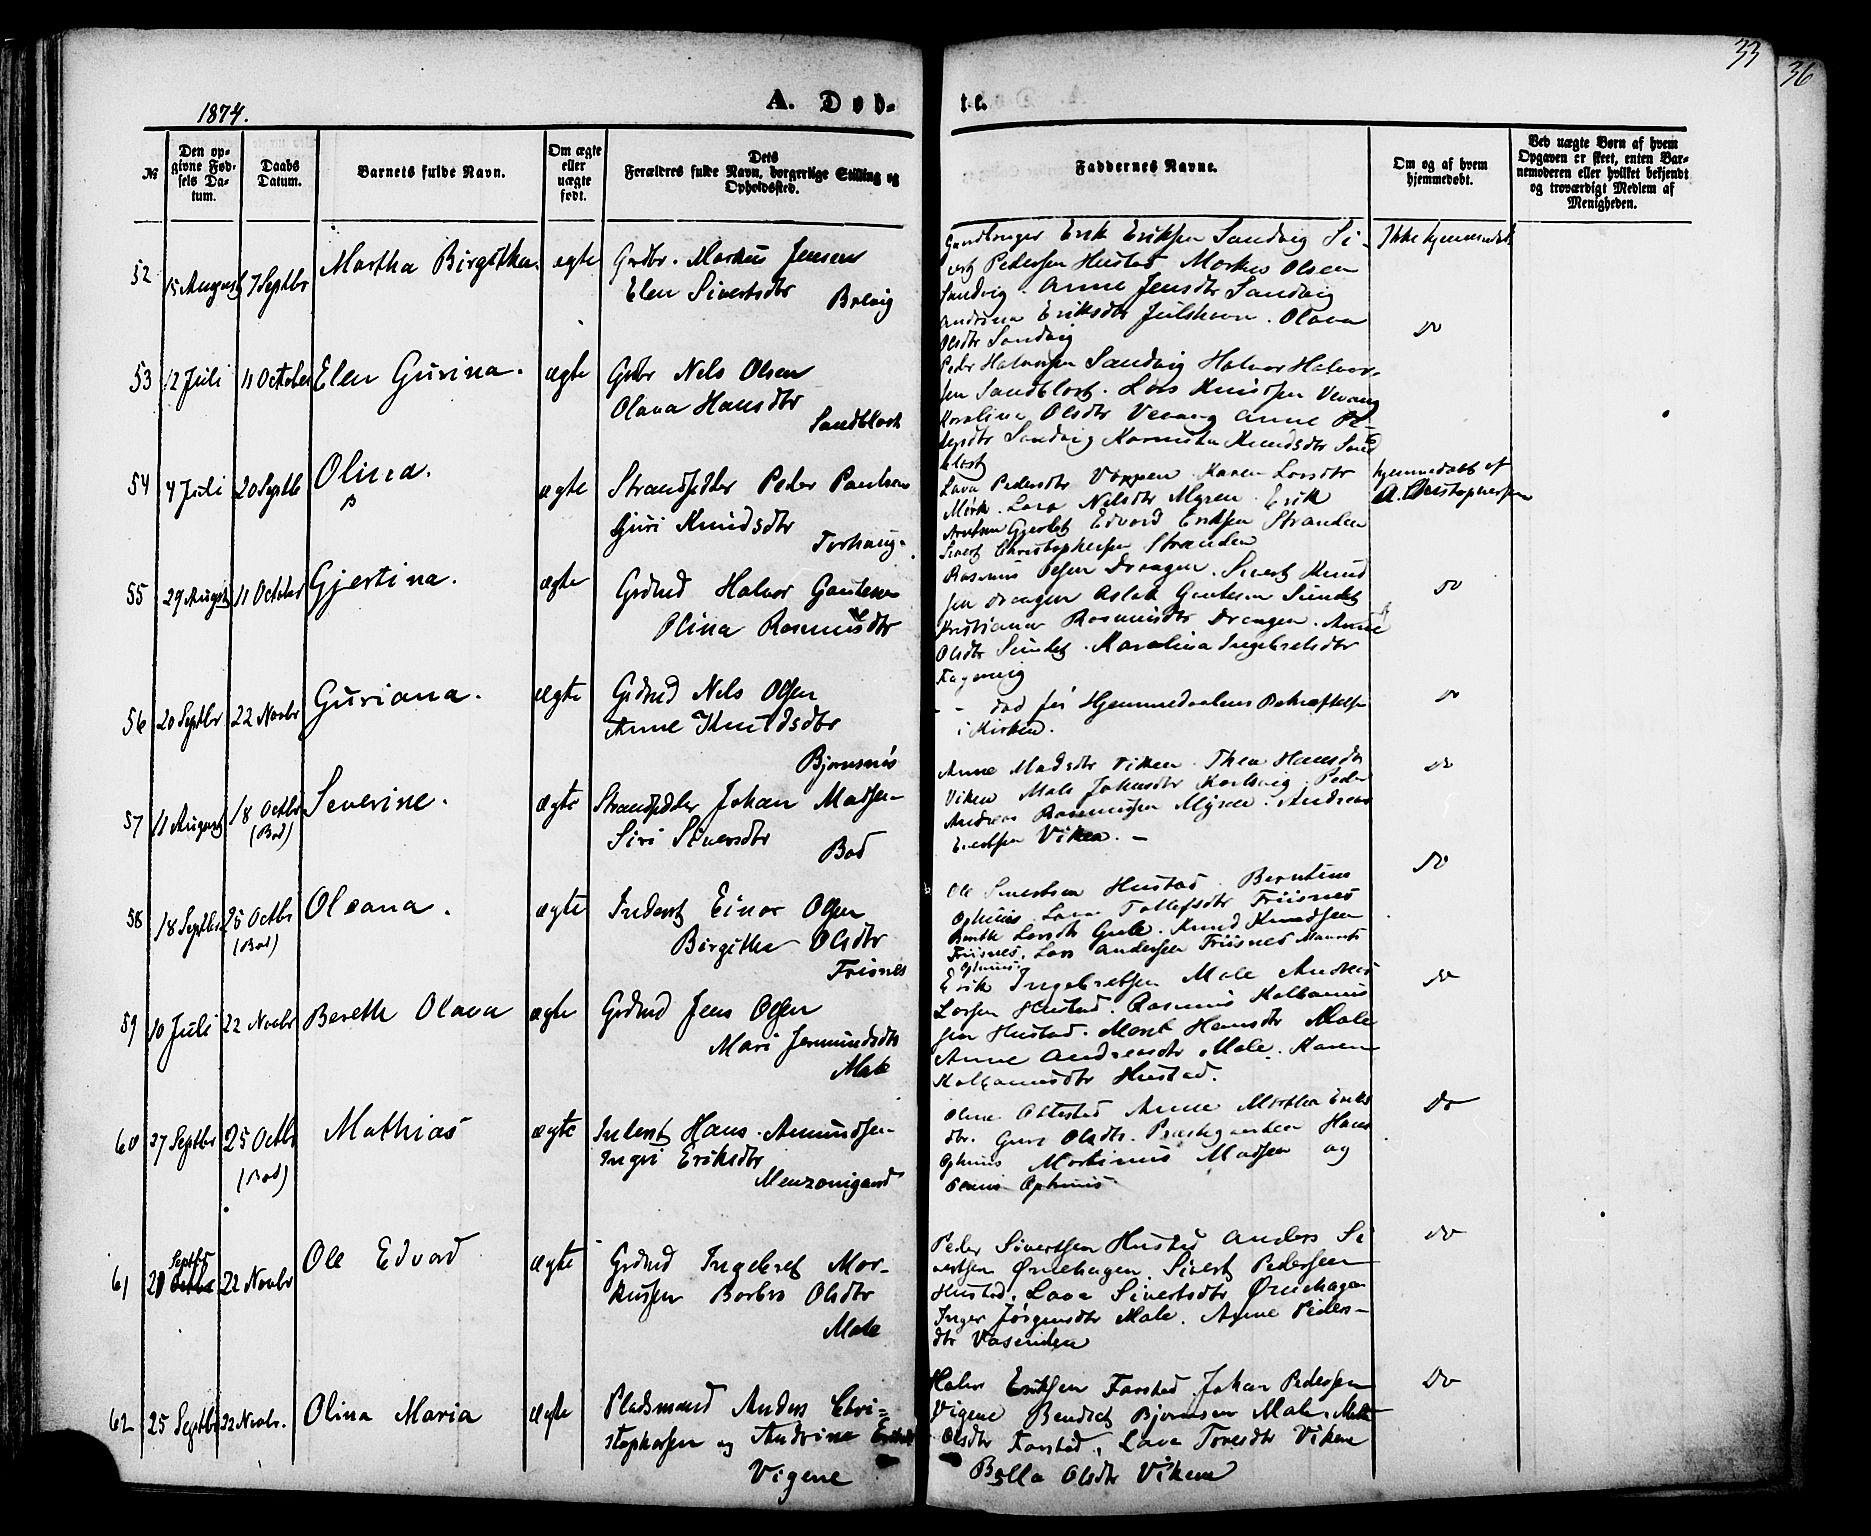 33
36
1874.
A. Døb-
te.
№
Den op-
givne Fød-
sels Da-
tum.
Daabs
Datum.
Barnets fulde Navn.
Om ægte
eller
uægte
født.
Dets
Forældres fulde Navn, borgerlige Stilling og
Opholdssted.
Faddernes Navne.
Om og af hvem
hjemmedøbt.
Ved uægte Børn af hvem
Opgaven er skeet, enten Bar-
nemoderen eller hvilket bekjendt
og troværdigt Medlem af
Menigheden.
52
15 August
7 Septbr
Martha Birgitha.
ægte
Grdbr. Markus Jensen
Elen Sivertsdtr
Brevig
Gaardbruger Erik Eriksen Sandvig Si-
vert Pedersen Hustad Markus Olsen
Sandvig. Anne Jensdtr Sandvig
Andrina Eriksdtr Julshavn. Olava
Olsdtr Sandvig
Ikke hjemmedøbt
do
53
12 Juli
11 October
Elen Gurina.
ægte
Grbr Nels Olsen
Olava Hansdtr
Sandblost
Peder Halvorsen Sandvig Halvor Halvor-
sen Sandblost. Lars Knudsen Vevang
Karolina Olsdtr Vevang Anne Pe-
dersdtr Sandvig Knudsdtr Sand
blost
54
4 Juli
20 Septbr
Olina.
ægte
Strandsidder Peder Paulsen
Guri Knudsdtr
Torhaug.
Lava Pedersdtr Karen Larsdtr
Mørk. Lava Nelsdtr Myren. Erik
Edvard Eriksen Stranden
Sivert Christophersen Stranden
hjemmedøbt af
A. Christophersen
55
29 August
11 October
Gjertina.
ægte
Grdmd Halvor Gautesen
Olina Rasmusdtr
Rasmus Olsen Drangen. Sivert Knud
sen Drangen Aslak Gautesen Sundet
Kristiana Rasmusdtr Drangen. Anne
Olsdtr Sundet. Karolina Ingebretsdtr
Fagervig
do
56
20 Septbr
22 Novbr
Guriana.
ægte
Grdmd Nels Olsen
Anne Knudsdtr
Bjørnsnøs
- - død før Hjemmedaabens Bekræftelse
i Kirken.
do
57
11 August
18 Octbr
(Bod)
Severine.
ægte
Strandsidder Johan Madsen
Siri Siversdtr
Bod
Anne Madsdtr Viken. Thea Hansdtr
Viken Male Johansdtr Peder
Andreas Rasmussen Myren. Andreas
Evertsen Viken. -
do
58
18 Septbr
25 Octbr
(Bod)
Oleana.
ægte
Inderst Einar Olsen
Birgitha Olsdtr
Frisnes
Ole Sivertsen Hustad. Berntine
Ophuus. Lava Tollefsdtr Friisnes
Bereth Larsdtr Gule. Knud Knudsen
Friisnes. Lars Andersen Friisnes
Ophuus.
do
59
10 Juli
22 Novbr
Bereth Olava
ægte
Grdmd Jens Olsen
Mari Jermundsdtr
Male
Erik Ingebretsen Male Andreas
Larsen Hustad. Rasmus Kolbanus
sen Hustad. Marit Hansdtr Male
Anne Andreasdtr Male. Karen
Kolbanusdtr Hustad.
do
60
27 Septbr
25 Octbr
(Bod)
Mathias
ægte
Inderst Hans Amundsen
Ingri Eriksdtr
Anne Martha Eriks
dtr. Guri Olsdtr. Hans
Ophuus Martinus Madsen og
Ophuus
do
61
Septbr
20
22 Novbr
Ole Edvard
ægte
Grdmd Ingebret Mar-
kussen Barbro Olsdtr
Male
Peder Sivertsen Hustad Anders Si
vertsen Ørnehagen. Sivert Pedersen
Hustad. Lava Sivertsdtr Ørnehagen
Inger Jørgensdtr Male. Anne Peders-
dtr Vasenden
do
62
25 Septbr
22 Novbr.
Olina Maria
ægte
Pladsmand Anders Chri=
stophersen og Andrine
Vigene
Halvor Eriksen Farstad. Johan Pedersen
Vigene Bendict Bjørnsen Male. Mette
Olsdtr Farstad. Lava Toresdtr Viken
Olsdtr Viken
Do